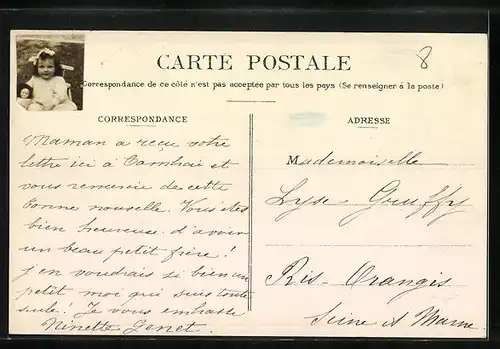 8
CARTE POSTALE
Correspondance de ce côté n'est pas acceptée par tous les pays (Se renseigner à la poste)
CORRESPONDANCE
Maman a reçu votre
lettre ici à Cambrai et
vous remercie de cette
bonne nouvelle. Vous êtes
bien heureuse d'avoir
un beau petit frère!
j'en voudrais si bien un
petit moi qui suis toute
seule! Je vous embrasse
Ninette Genet.
ADRESSE
Mademoiselle
Lyse Gruffy
Ris-Orangis
Seine et Marne